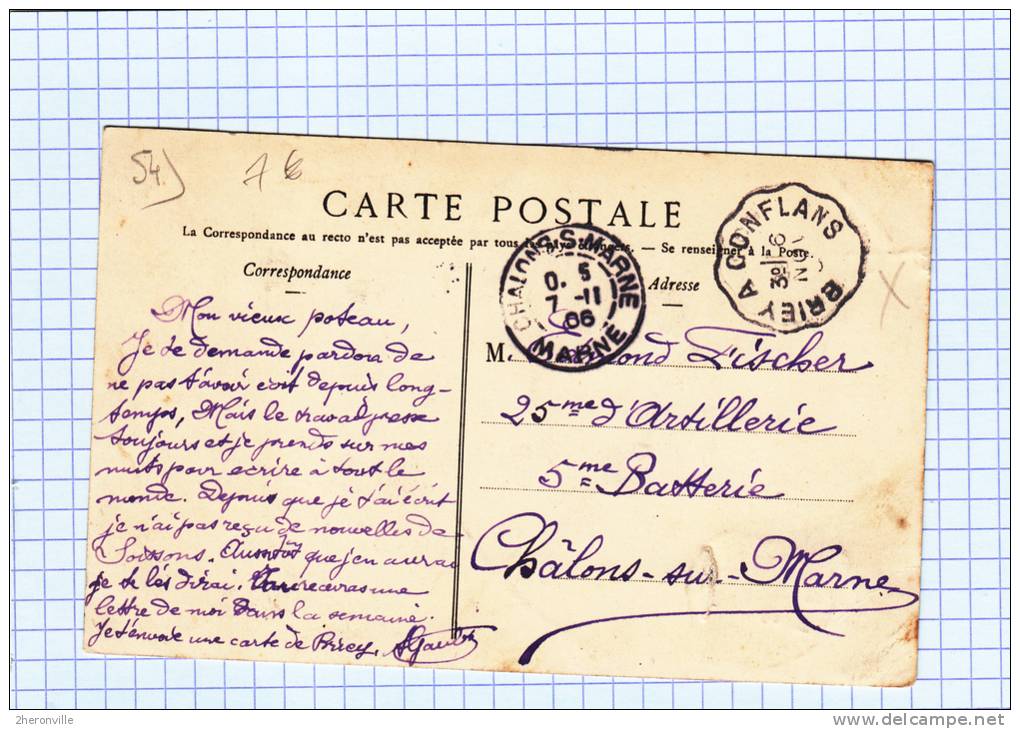 54
CARTE POSTALE
La Correspondance au recto n'est pas acceptée par tous les pays étrangers. — Se renseigner à la Poste.
Correspondance
Mon vieux poteau,
Je te demande pardon de
ne pas t'avoir écrit depuis long-
temps, Mais le travail presse
toujours et je prends sur mes
nuits pour ecrire à tout le
monde. Depuis que je t'ai écrit
je n'ai pas reçu de nouvelles de
Soissons. Aussitôt que j'en aurai
je te les dirai. Tu recevras une
lettre de moi dans la semaine.
Je t'envoie une carte de Briey.
Adresse
M. Fischer
25me d'Artillerie
5me Batterie
Châlons-sur-Marne
CHALONS-S-MARNE
O. 5
7 -11
06
MARNE
BRIEY A CONFLANS
3º 6
NOV
2heronville
delcampe.net